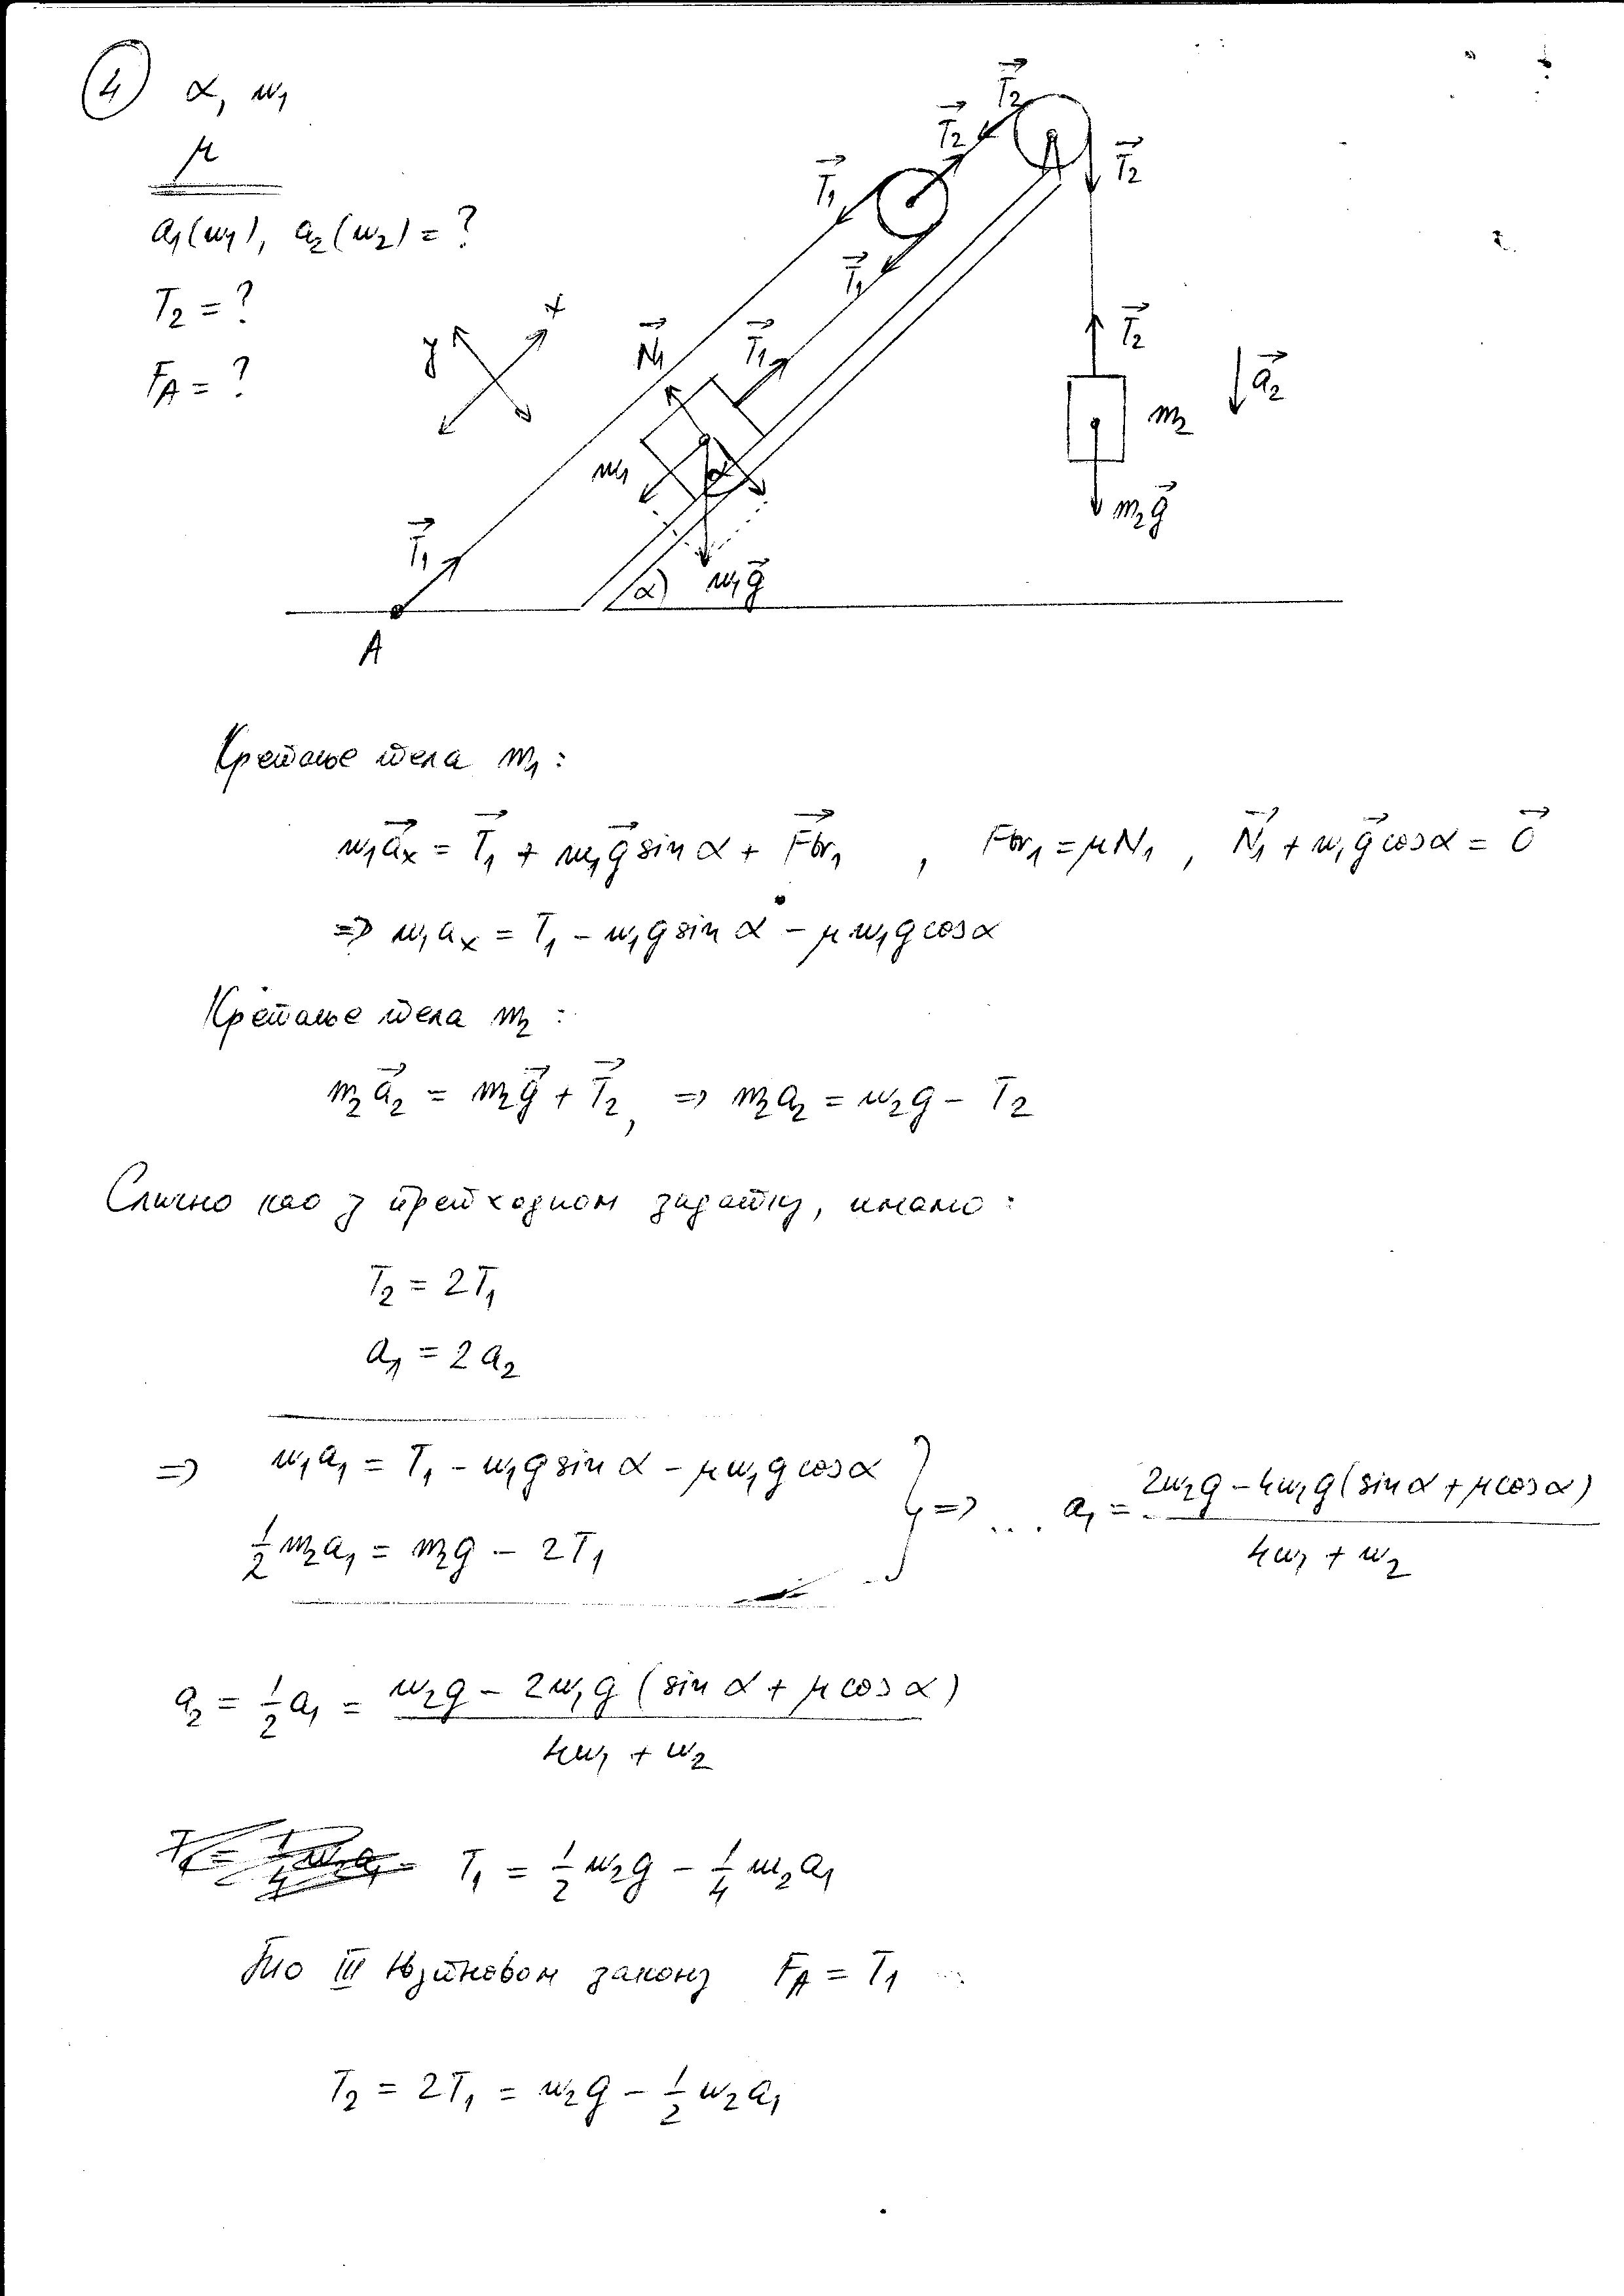 ④ α, m₁
μ
a₁(m₁), a₂(m₂) = ?
T₂ = ?
F_A = ?
y x
T⃗₂
T⃗₂
T⃗₂
T⃗₁
T⃗₁
N⃗₁ T⃗₁
T⃗₂
a⃗₂
m₂
m₁
α
m₂g⃗
T⃗₁
α m₁g⃗
A
Кретање тела m₁:
m₁a⃗ₓ = T⃗₁ + m₁g⃗ sin α + F⃗tr₁ , Ftr₁ = μN₁ , N⃗₁ + m₁g⃗ cos α = 0⃗
⇒ m₁aₓ = T₁ - m₁g sin α - μm₁g cos α
Кретање тела m₂:
m₂a⃗₂ = m₂g⃗ + T⃗₂, ⇒ m₂a₂ = m₂g - T₂
Слично као у претходном задатку, имамо:
T₂ = 2T₁
a₁ = 2a₂
⇒ m₁a₁ = T₁ - m₁g sin α - μm₁g cos α
½ m₂a₁ = m₂g - 2T₁ } ⇒ ... a₁ = (2m₂g - 4m₁g (sin α + μ cos α)) / (4m₁ + m₂)
a₂ = ½ a₁ = (m₂g - 2m₁g (sin α + μ cos α)) / (4m₁ + m₂)
T₁ = ½ m₂g - ¼ m₂a₁
По III Њутновом закону F_A = T₁
T₂ = 2T₁ = m₂g - ½ m₂a₁